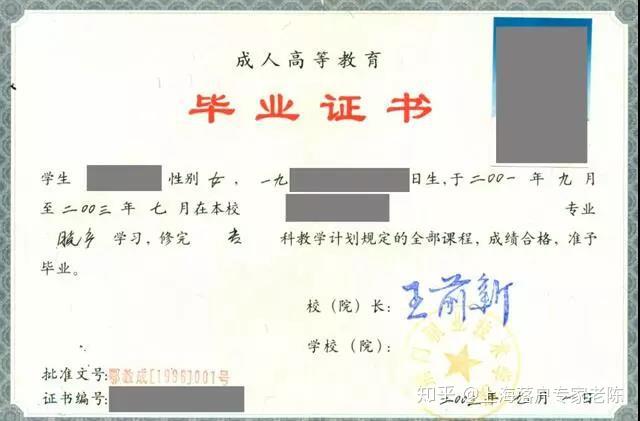 成人高等教育
毕业证书
学生 性别 女，一九 日生，于二〇〇一年九月
至二〇〇三年七月在本校 专业
脱产 学习，修完 专 科教学计划规定的全部课程，成绩合格，准予
毕业。
校（院）长：王前新
学校（院）：
门职业技术学
批准文号：鄂教成[1996]001号
证书编号：
二〇〇三年七月一日
知乎 @上海落户专家老陈